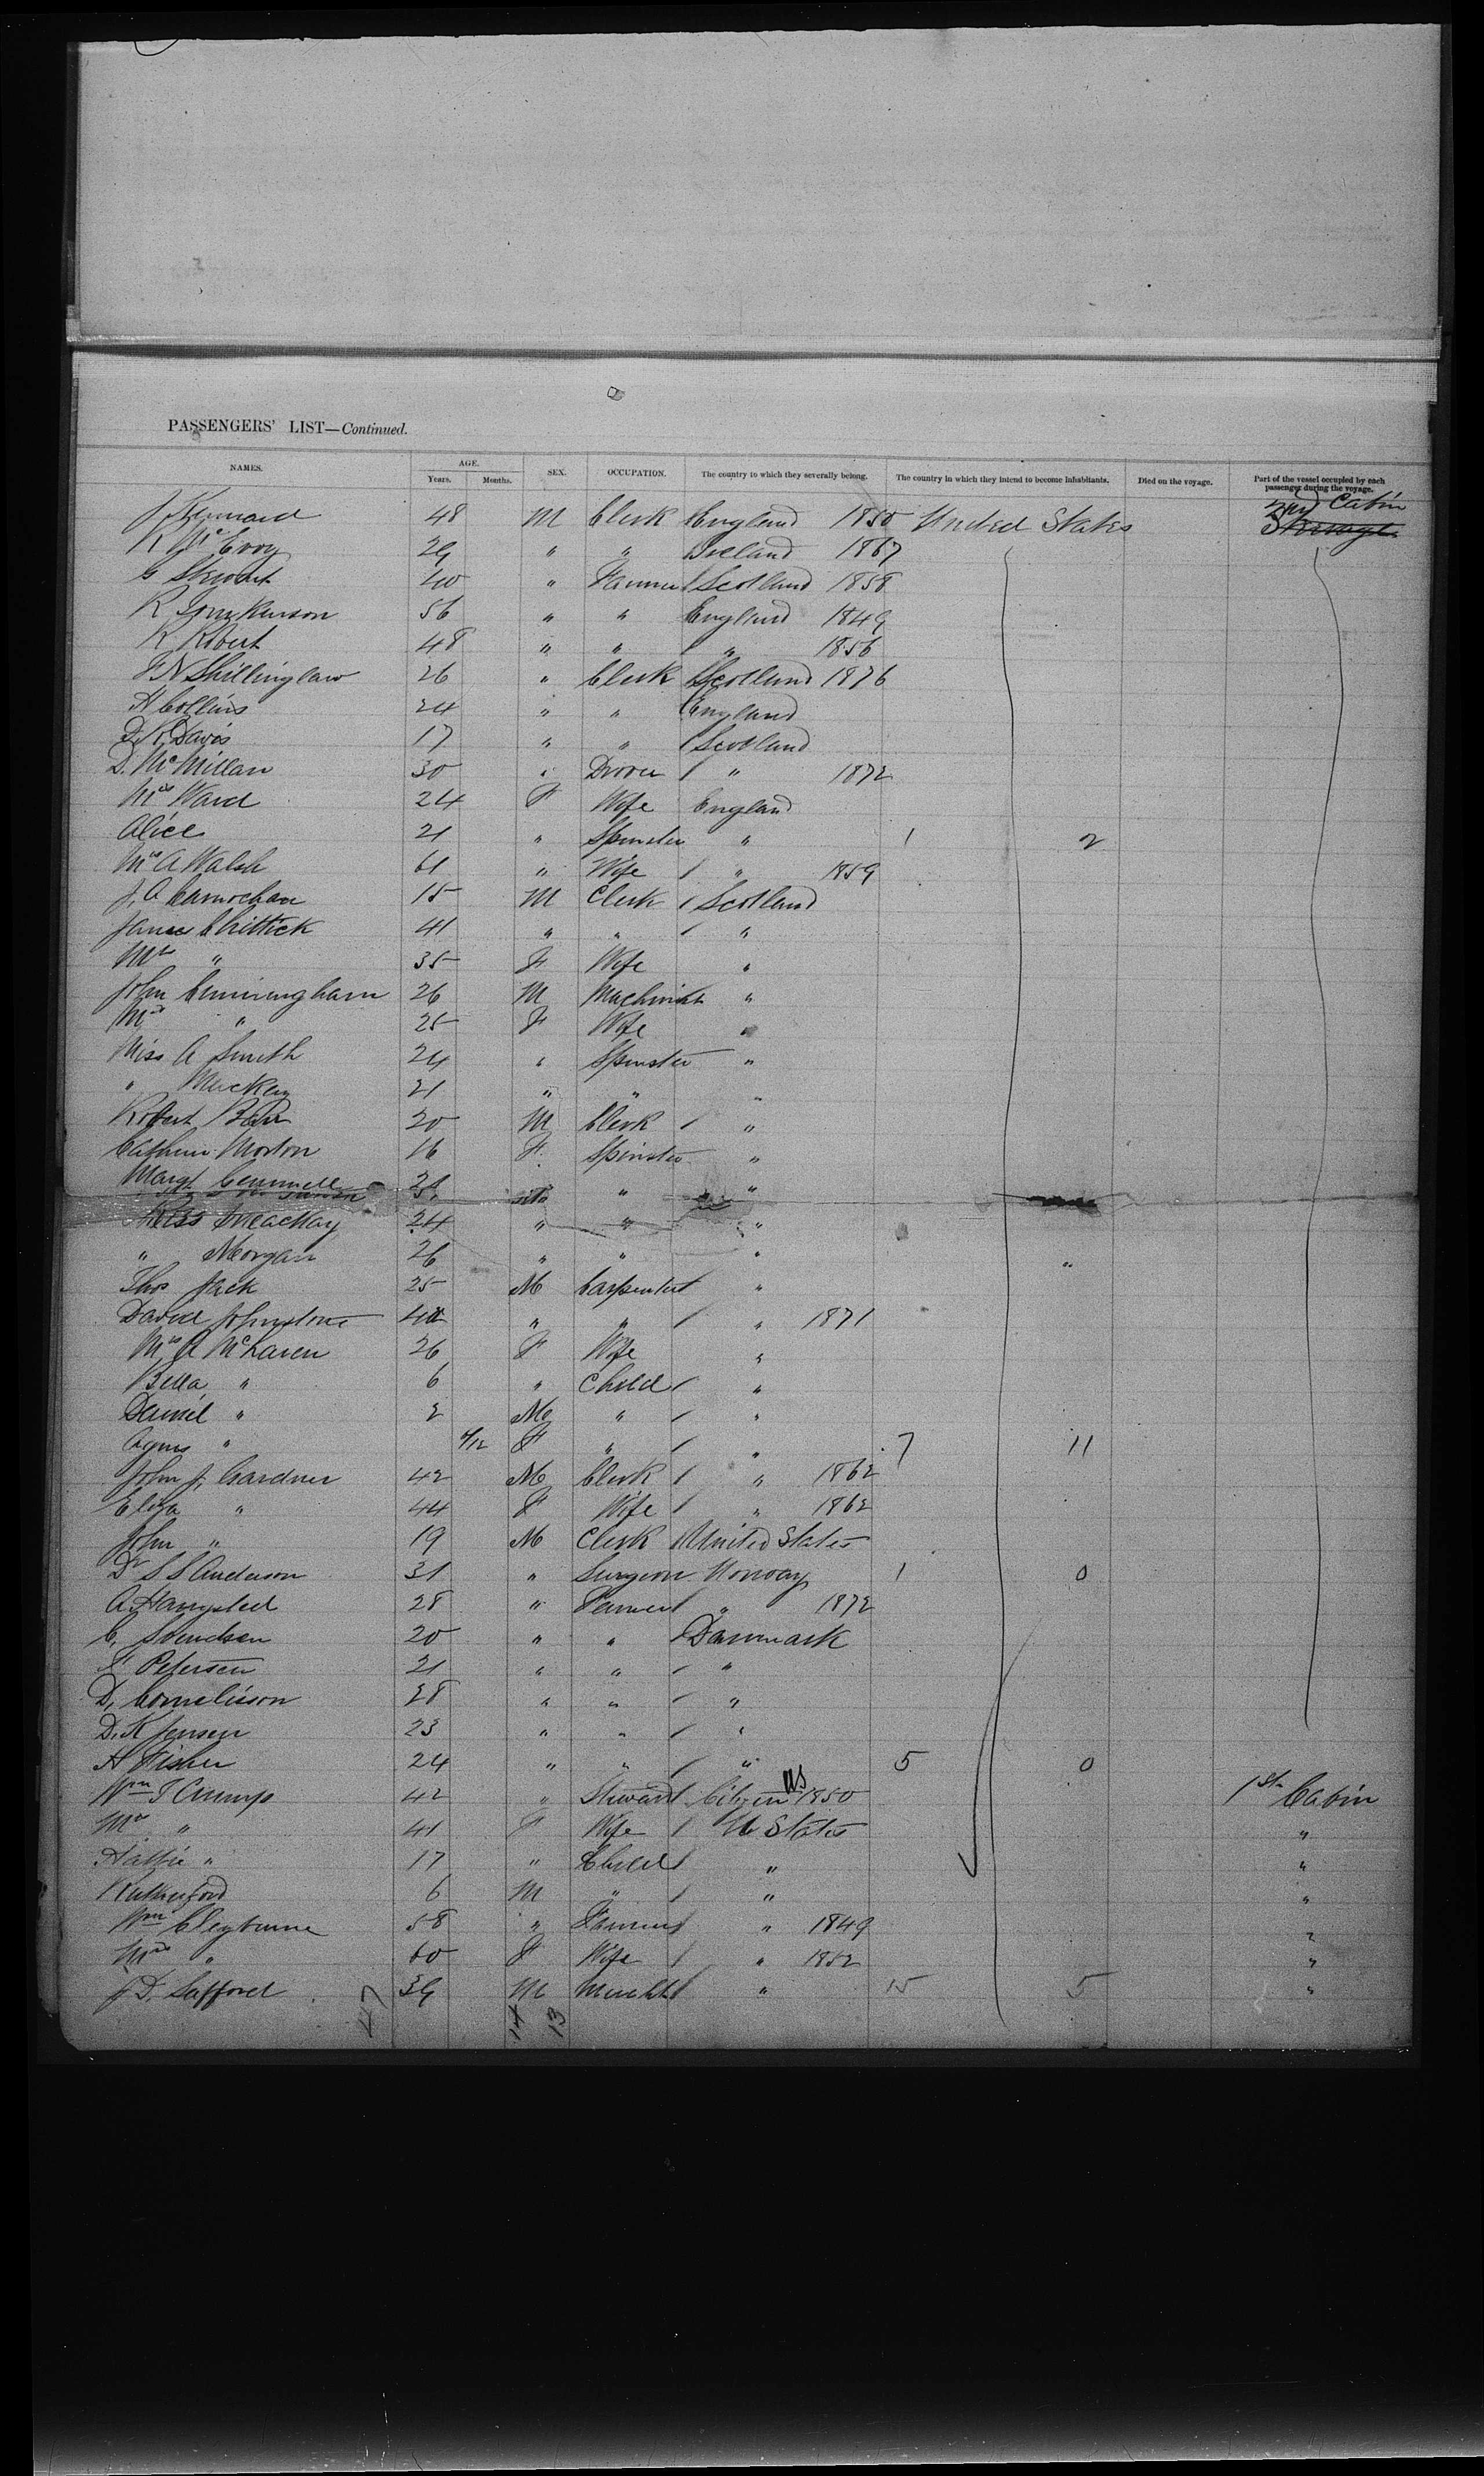 PASSENGERS' LIST—Continued.
NAMES. AGE. SEX. OCCUPATION. The country to which they severally belong. The country in which they intend to become inhabitants. Died on the voyage. Part of the vessel occupied by each passenger during the voyage.
Years. Months.
J Kennard 48 M Clerk England 1850 United States 2nd Cabin Steerage
R McEvoy 29 " " Ireland 1867
G Stewart 40 " Farmer Scotland 1858
R 56 " " England 1849
R Robert 48 " " " 1856
J N Shillinglaw 26 " Clerk Scotland 1876
A Collins 24 " " England
Davis 17 " " Scotland
D. McMillan 30 " Drover " 1872
Mrs Ward 24 F Wife England
Alice 21 " Spinster " 1 2
Mrs A Walsh 61 " Wife " 1859
J. A Carnochan 15 M Clerk Scotland
James Chittick 41 " " "
Mrs " 35 F Wife "
John Cunningham 26 M Machinist "
Mrs " 25 F Wife "
Miss A Smith 24 " Spinster "
" 21 " " "
Robert 20 M Clerk "
Morton 16 F. Spinster "
Margt 21 " "
Miss MacKay 24 " " "
" Morgan 26 " " " "
Thos Jack 25 M Carpenter "
David Johnstone " " " 1871
Mrs A McLaren 26 F Wife "
Bella " 6 " Child "
Daniel " 2 M " "
Agnes " /12 F " " 7 11
John J. Gardner 42 M Clerk " 1862
Eliza " 44 F Wife " 1862
John " 19 M Clerk United States
Dr S S Anderson 31 " Surgeon Norway 1 0
A. 28 " Farmer " 1872
C. Svendsen 20 " " Danmark
Petersen 21 " " "
D, Cornelisson 28 " " "
D. K Jensen 23 " " "
H Fisher 24 " " " 5 0
Wm T Crump 42 " Steward Citizen US 1850 1st Cabin
Mrs " 41 F Wife U States "
Hattie " 17 " Child " "
Rutherford 6 M " " "
Wm Cleyburne 58 " Farmer " 1849 "
Mrs " 60 F Wife " 1852 "
J D. Safford 39 M Mercht " 15 5 "
47 14 13